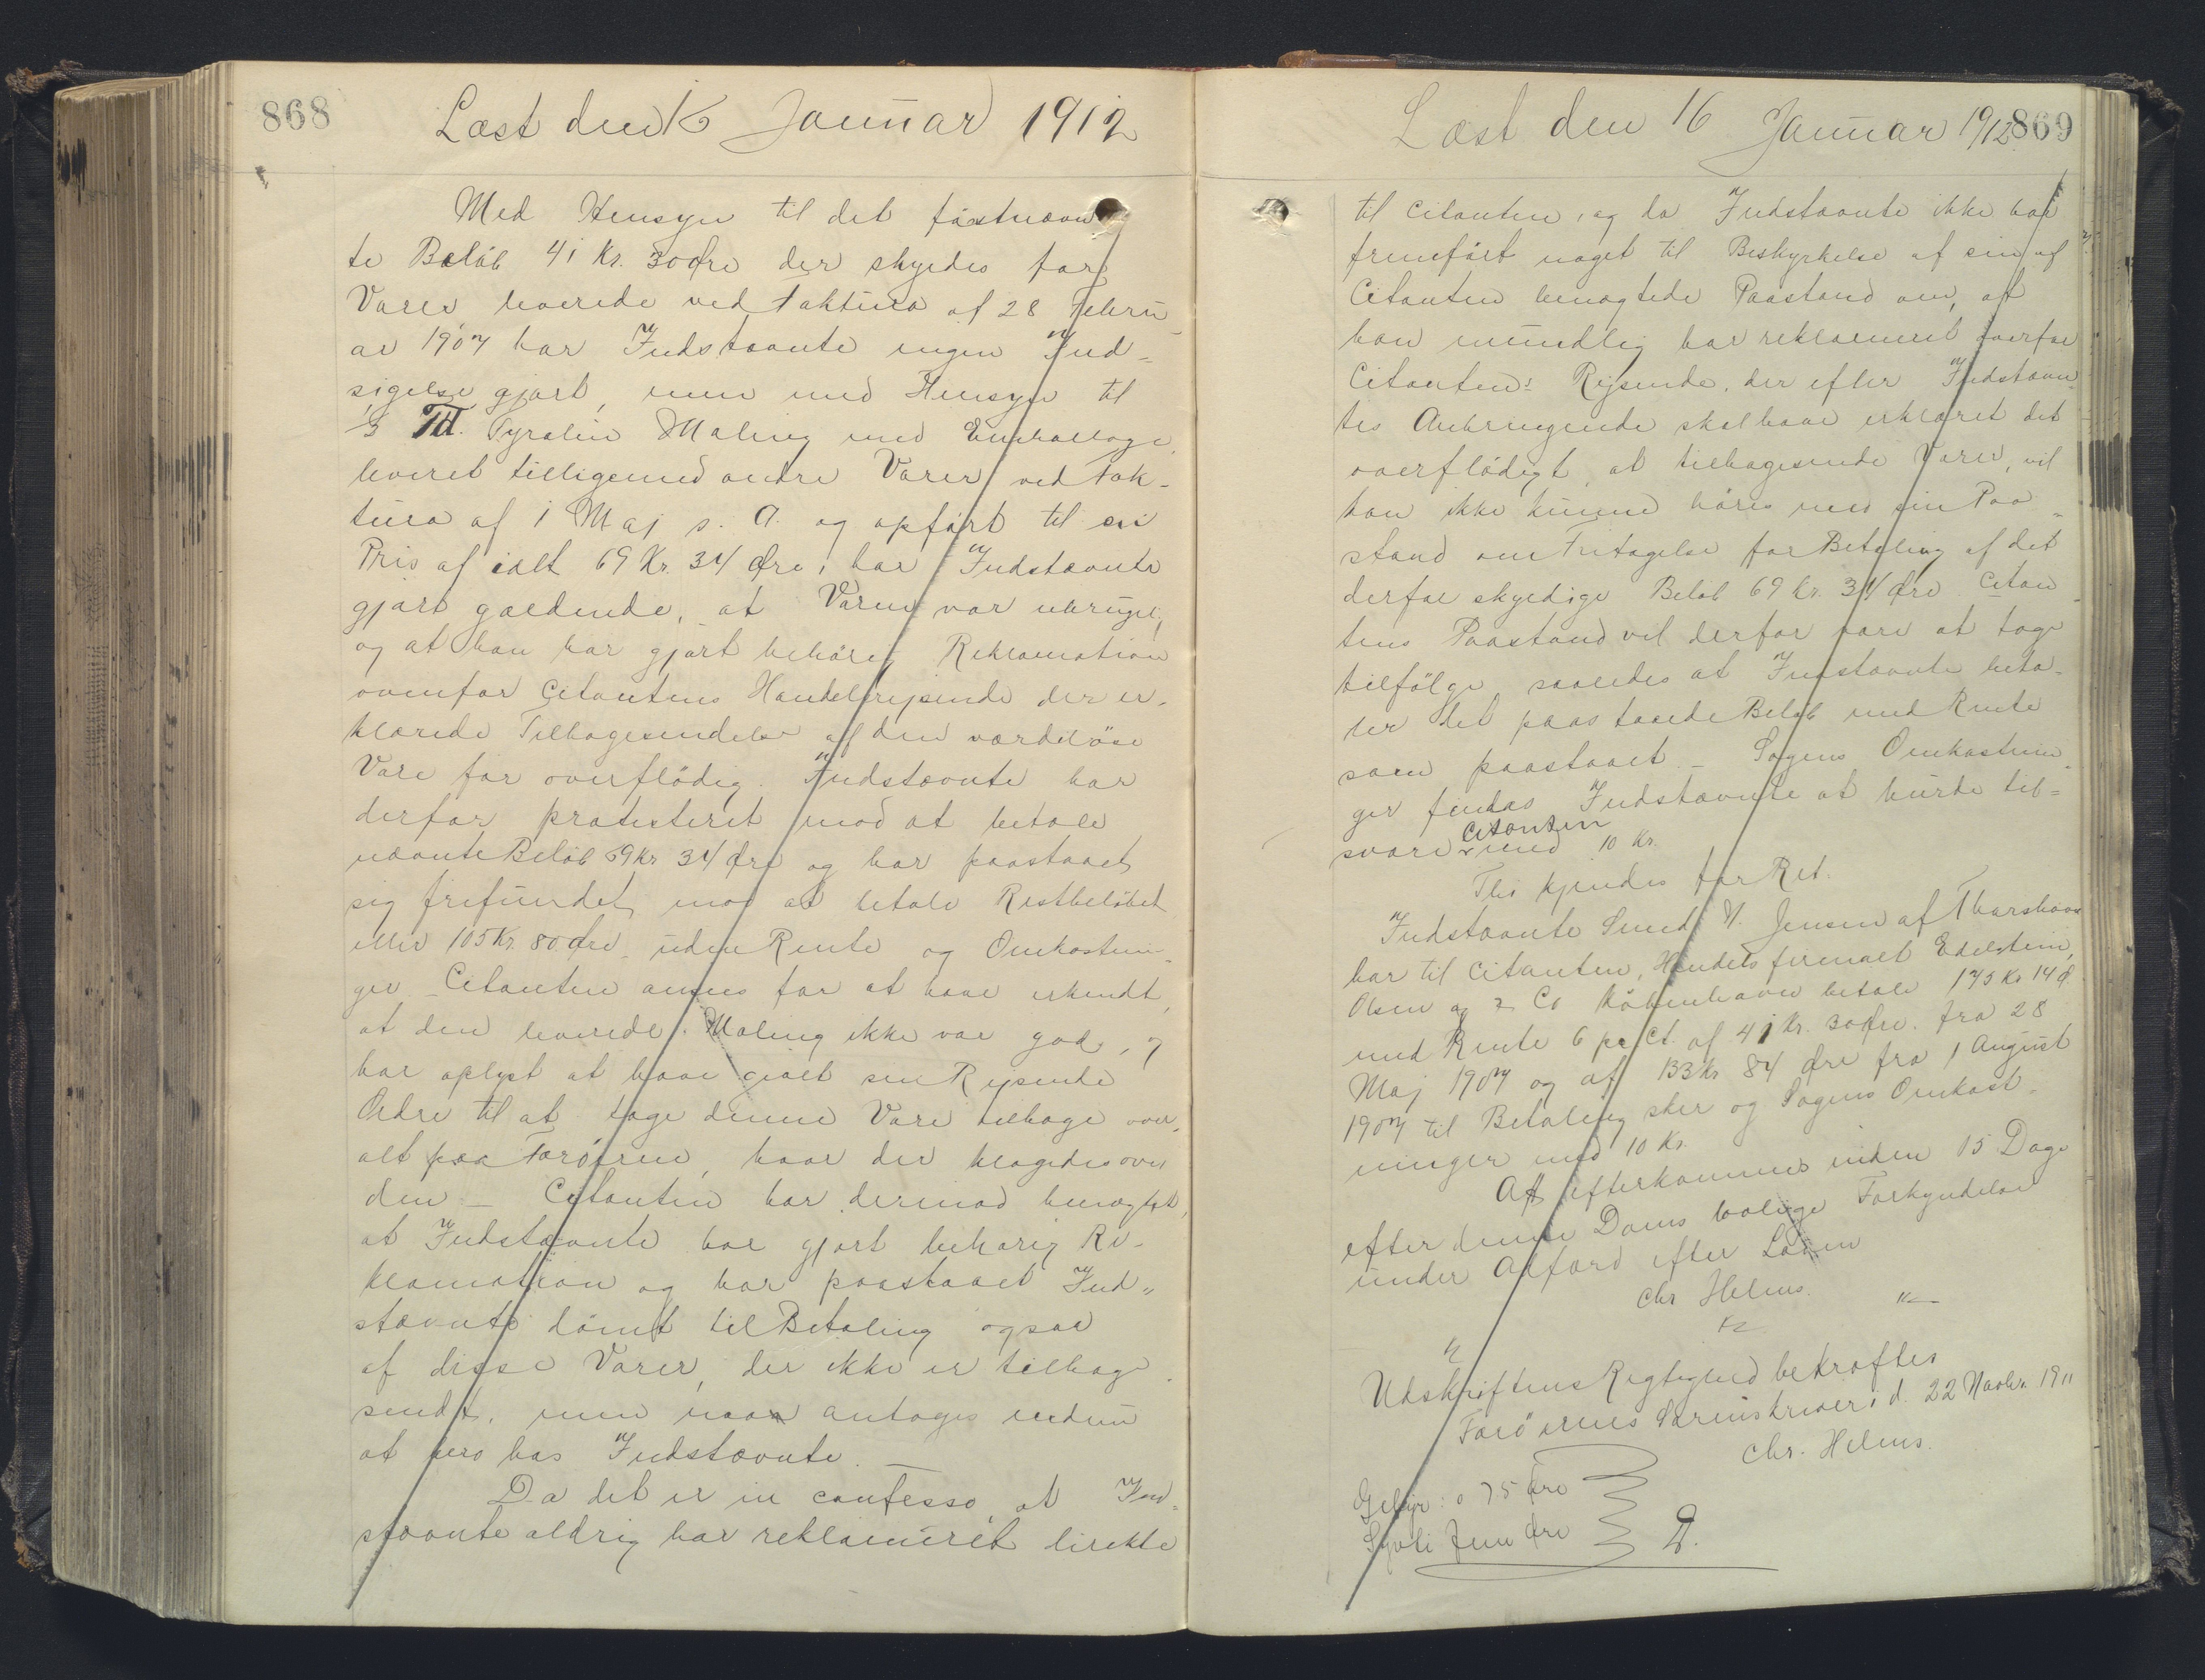 868
Læst den 16 Januar 1912
Med Hensyn til det førstnævn
te Beløb 41 Kr. 30 Øre der skyldes for
Varer leverede ved Faktura af 28 Febru-
ar 1907 har Indstævnte ingen Ind-
sigelse gjort, men med Hensyn til
3 Td. Pyralin Maling med Emballage,
leveret tilligemed andre Varer ved Fak-
tura af 1 Maj s. A. og opført til en
Pris af ialt 69 Kr. 34 Øre, har Indstævnte
gjort gældende, at Varen var ubrugel.,
og at han har gjort behørig Reklamation
overfor Citantens Handelsrejsende der er-
klærede Tilbagesendelse af den værdiløse
Vare for overflødig. Indstævnte har
derfor protesteret mod at betale
nævnte Beløb 69 Kr 34 Øre og har paastaaet
sig frifundet mod at betale Restbeløbet
eller 105 Kr. 80 Øre uden Rente og Omkostnin-
ger – Citanten anses for at have erkendt,
at den leverede Maling ikke var god, og
har oplyst at have givet sin Rejsende
Ordre til at tage denne Vare tilbage over-
alt paa Færøerne, hvor der klagedes over
den – Citanten har derimod benægtet,
at Indstævnte har gjort behørig Re-
klamation og har paastaaet Ind-
stævnte dømt til Betaling ogsaa
af disse Varer, der ikke er tilbage-
sendt, men maa antages endnu
at bero hos Indstævnte.
Da det er in confesso, at Ind-
stævnte aldrig har reklameret direkte
Læst den 16 Januar 1912
869
til Citanten, og da Indstævnte ikke har
fremført noget til Bestyrkelse af sin af
Citanten benægtede Paastand om, at
han mundlig har reklameret overfor
Citantens Rejsende, der efter Indstævn
tes Anbringende skal have erklæret det
overflødigt at tilbagesende Varen, vil
han ikke kunne høres med sin Paa-
stand om Fritagelse for Betaling af det
derfor skyldige Beløb 69 Kr. 34 Øre Citan-
tens Paastand vil derfor være at tage
tilfølge saaledes at Indstævnte beta-
ler det paastaaede Beløb med Rente
som paastaaet. – Sagens Omkostnin-
ger findes Indstævnte at burde til-
svare Citanten med 10 Kr.
Thi kjendes for Ret.
Indstævnte Smed V. Jensen af Thorshavn
bør til Citanten, Handelsfirmaet Edelstein,
Olsen og Co København betale 175 Kr 14 Ø
med Rente 6 pr Ct. af 41 Kr. 30 Øre. fra 28
Maj 1907 og af 133 Kr 84 Øre fra 1 August
1907 til Betaling sker og Sagens Omkost-
ninger med 10 Kr.
At efterkommes inden 15 Dage
efter denne Doms lovlige Forkyndelse
under Adfærd efter Loven
Chr Helms.
Udskriftens Rigtighed bekræftes
Færøernes Sorenskriveri d. 22 Novbr. 1911
Chr. Helms.
Gebyr: 0 75 Øre
Syvti Fem Øre